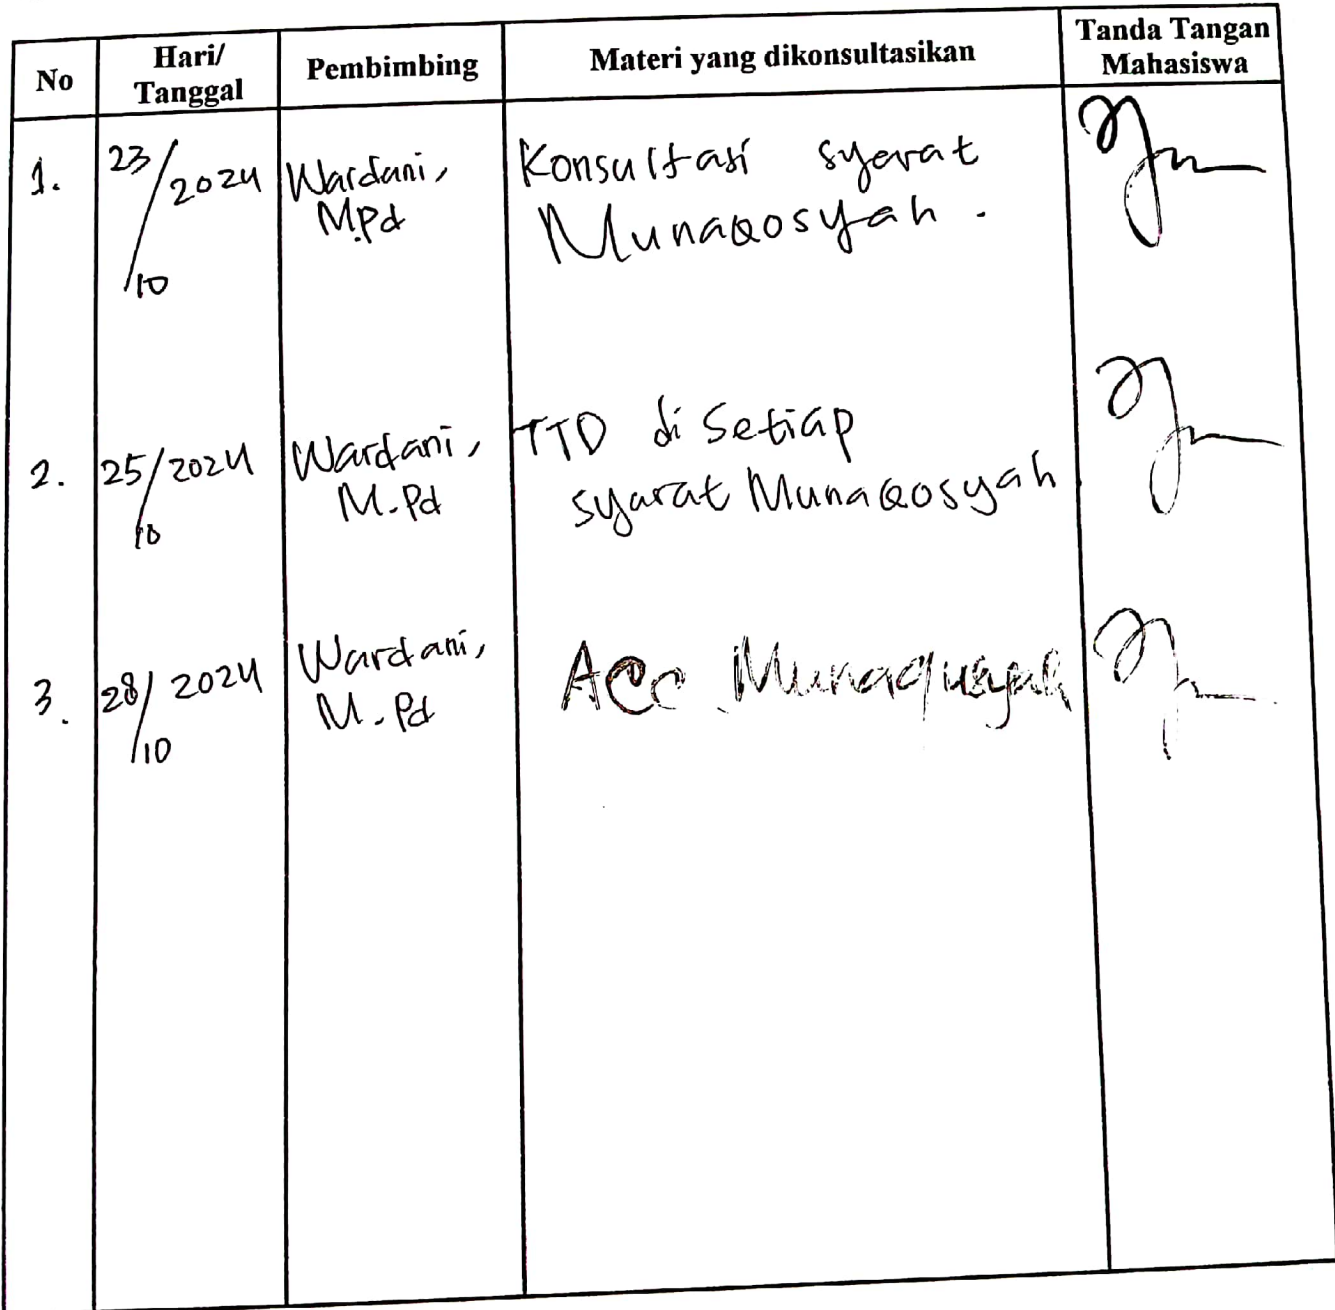 No Hari/ Tanggal Pembimbing Materi yang dikonsultasikan Tanda Tangan Mahasiswa
1. 23/10 2024 Wardani, Konsultasi syarat
M.Pd Munaqosyah.
2. 25/10 2024 Wardani, TTD di Setiap
M.Pd syarat Munaqosyah
3. 28/10 2024 Wardani, ACC
M.Pd